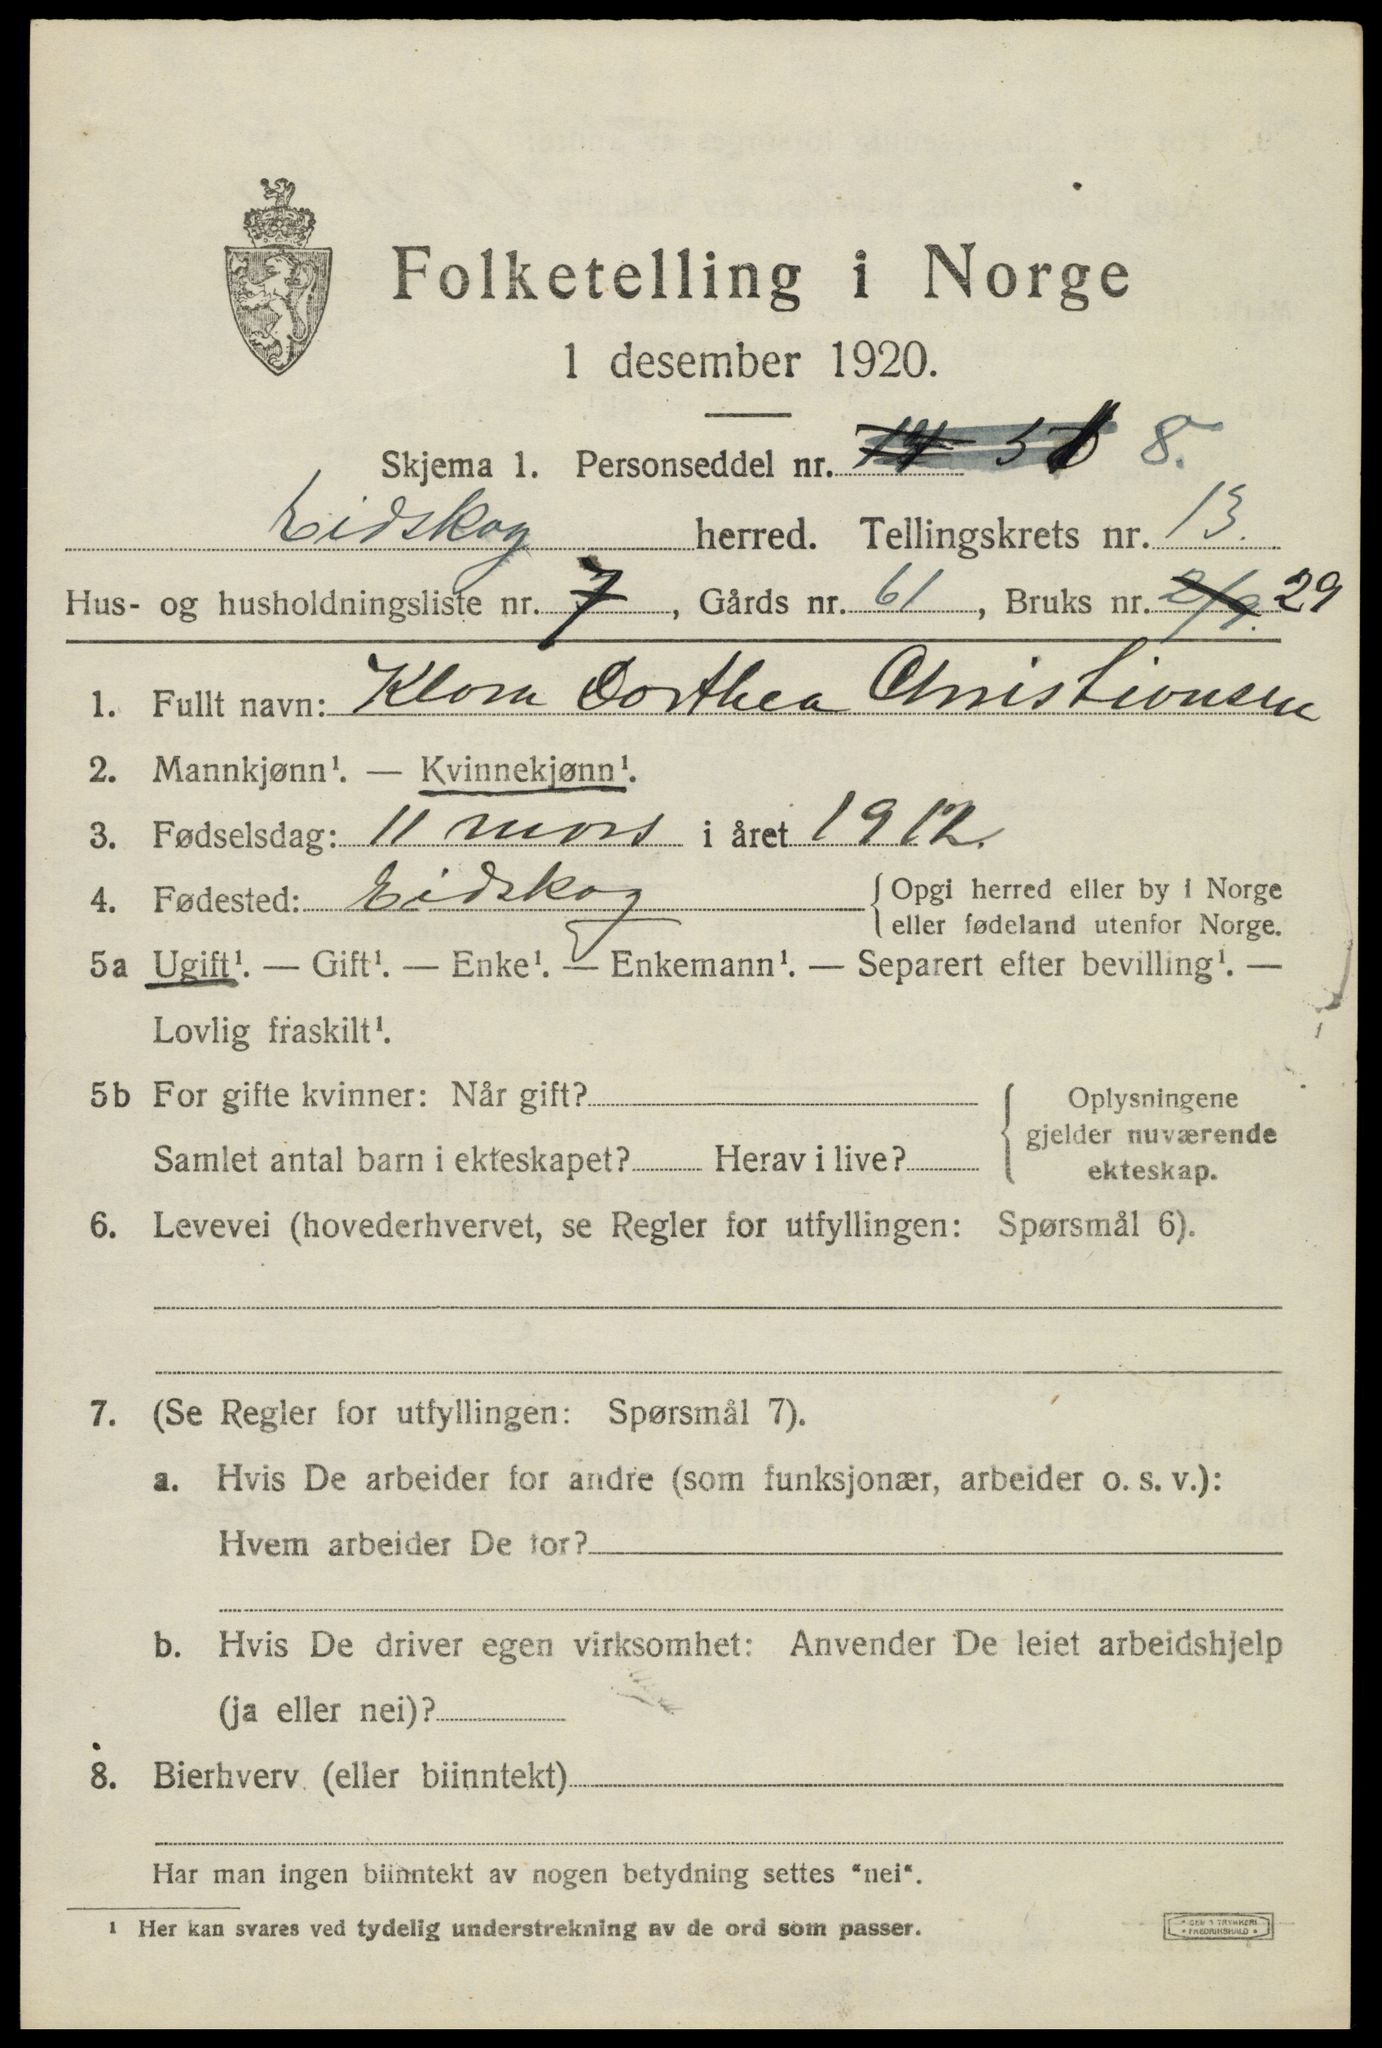 Folketelling i Norge
1 desember 1920.
Skjema 1. Personseddel nr. 8.
Eidskog herred. Tellingskrets nr. 13.
Hus- og husholdningsliste nr. 7, Gårds nr. 61, Bruks nr. 2/9. 29
1. Fullt navn: Klara Dorthea Christiansen
2. Mannkjønn¹. — Kvinnekjønn¹.
3. Fødselsdag: 11 mars i året 1912.
4. Fødested: Eidskog {Opgi herred eller by i Norge
eller fødeland utenfor Norge.
5a Ugift¹. — Gift¹. — Enke¹. — Enkemann¹. — Separert efter bevilling¹. —
Lovlig fraskilt¹.
5b For gifte kvinner: Når gift? { Oplysningene
gjelder nuværende
Samlet antal barn i ekteskapet? Herav i live? ekteskap.
6. Levevei (hovederhvervet, se Regler for utfyllingen: Spørsmål 6).
7. (Se Regler for utfyllingen: Spørsmål 7).
a. Hvis De arbeider for andre (som funksjonær, arbeider o. s. v.):
Hvem arbeider De for?
b. Hvis De driver egen virksomhet: Anvender De leiet arbeidshjelp
(ja eller nei)?
8. Bierhverv (eller biinntekt)
Har man ingen biinntekt av nogen betydning settes "nei".
¹ Her kan svares ved tydelig understrekning av de ord som passer.
TRYKKERI
FREDRIKSHALD